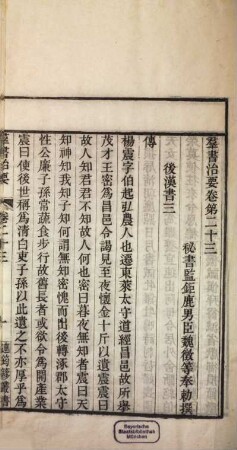 羣書治要卷第二十三
秘書監鉅鹿男臣魏徵等奉勅撰
後漢書三
傳
楊震字伯起弘農人也遷東萊太守道經昌邑故所舉
茂才王密爲昌邑令謁見至夜懷金十斤以遺震震曰
故人知君君不知故人何也密曰暮夜無知者震曰天
知神知我知子知何謂無知密愧而出後轉涿郡太守
性公廉子孫常蔬食步行故舊長者或欲令爲開產業
震曰使後世稱爲清白吏子孫以此遺之不亦厚乎爲
羣書治要
卷二十三
連筠簃叢書
Bayerische
Staatsbibliothek
München